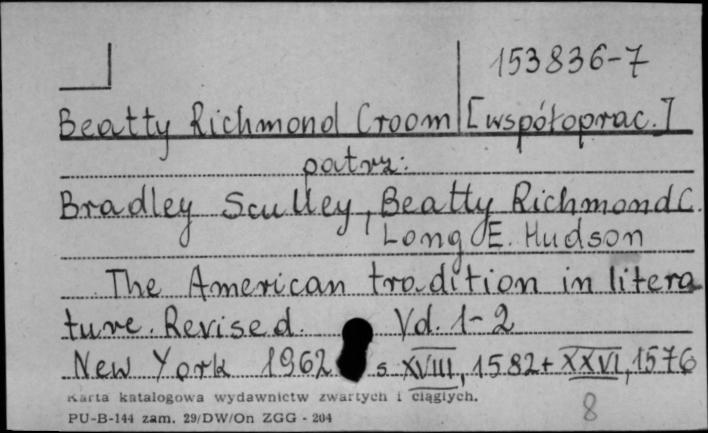 153836-7
Beatty Richmond Croom [współoprac.]
patrz:
Bradley Sculley, Beatty Richmond C.
Long E. Hudson
The American tradition in litera
ture. Revised. Vol. 1-2
New York 1962 s XVIII, 1582+XXVI, 1576
Karta katalogowa wydawnictw zwartych i ciągłych.
PU-B-144 zam. 29/DW/On ZGG - 204
8